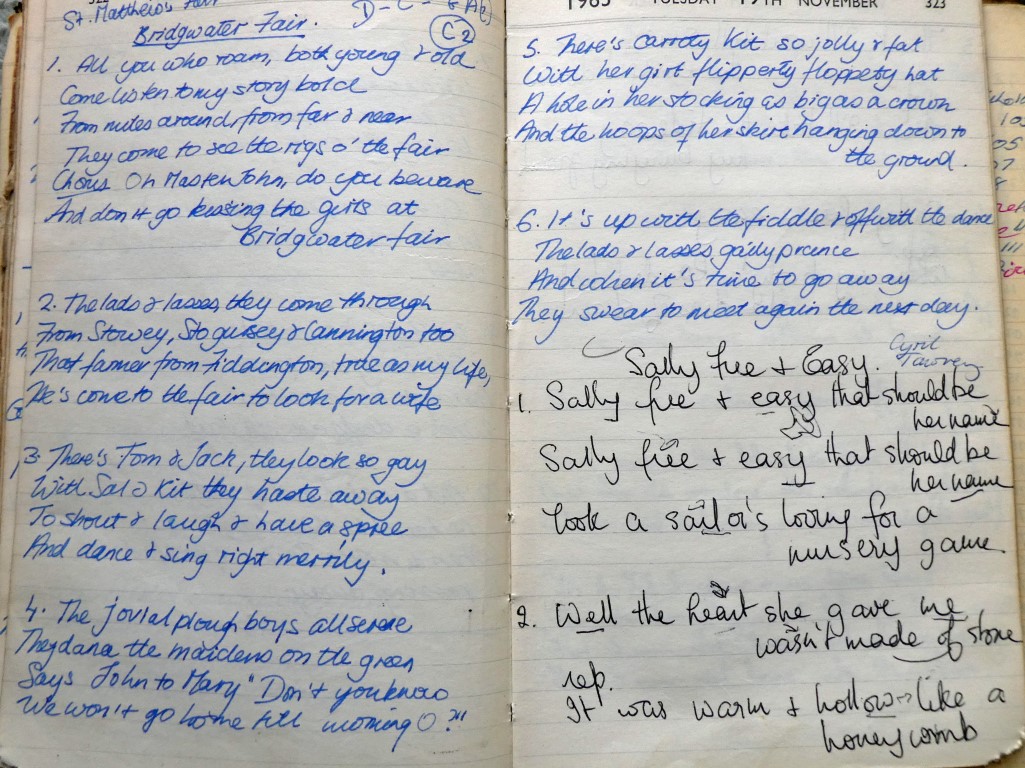 322
St. Matthews Fair
Bridgwater Fair.
D - C - G A(
C2
1. All you who roam, both young & old
Come listen to my story bold
From miles around, from far & near
They come to see the rigs o' the fair
Chorus Oh Master John, do you beware
And don't go kissing the girls at
Bridgwater fair
2. The lads & lasses, they come through
From Stowey, Stogursey & Cannington too
That farmer from Fiddington, true as my life,
He's come to the fair to look for a wife
3. There's Tom & Jack, they look so gay
With Sal & Kit they haste away
To shout & laugh & have a spree
And dance & sing right merrily.
4. The jovial plough boys all serene
They dance the maidens on the green
Says John to Mary "Don't you know
We won't go home till morning O?"
1985 TUESDAY 19TH NOVEMBER 323
5. There's Carroty Kit so jolly & fat
With her girt flipperty floppety hat
A hole in her stocking as big as a crown
And the hoops of her skirt hanging down to
the ground.
6. It's up with the fiddle & off with the dance
The lads & lasses gaily prance
And when it's time to go away
They swear to meet again the next day.
Sally free & Easy.
Cyril
Tawney
1. Sally free & easy that should be
her name
Sally free & easy that should be
her name
Took a sailor's loving for a
nursery game.
2. Well the heart she gave me
wasn't made of stone
rep.
It was warm & hollow like a
honeycomb